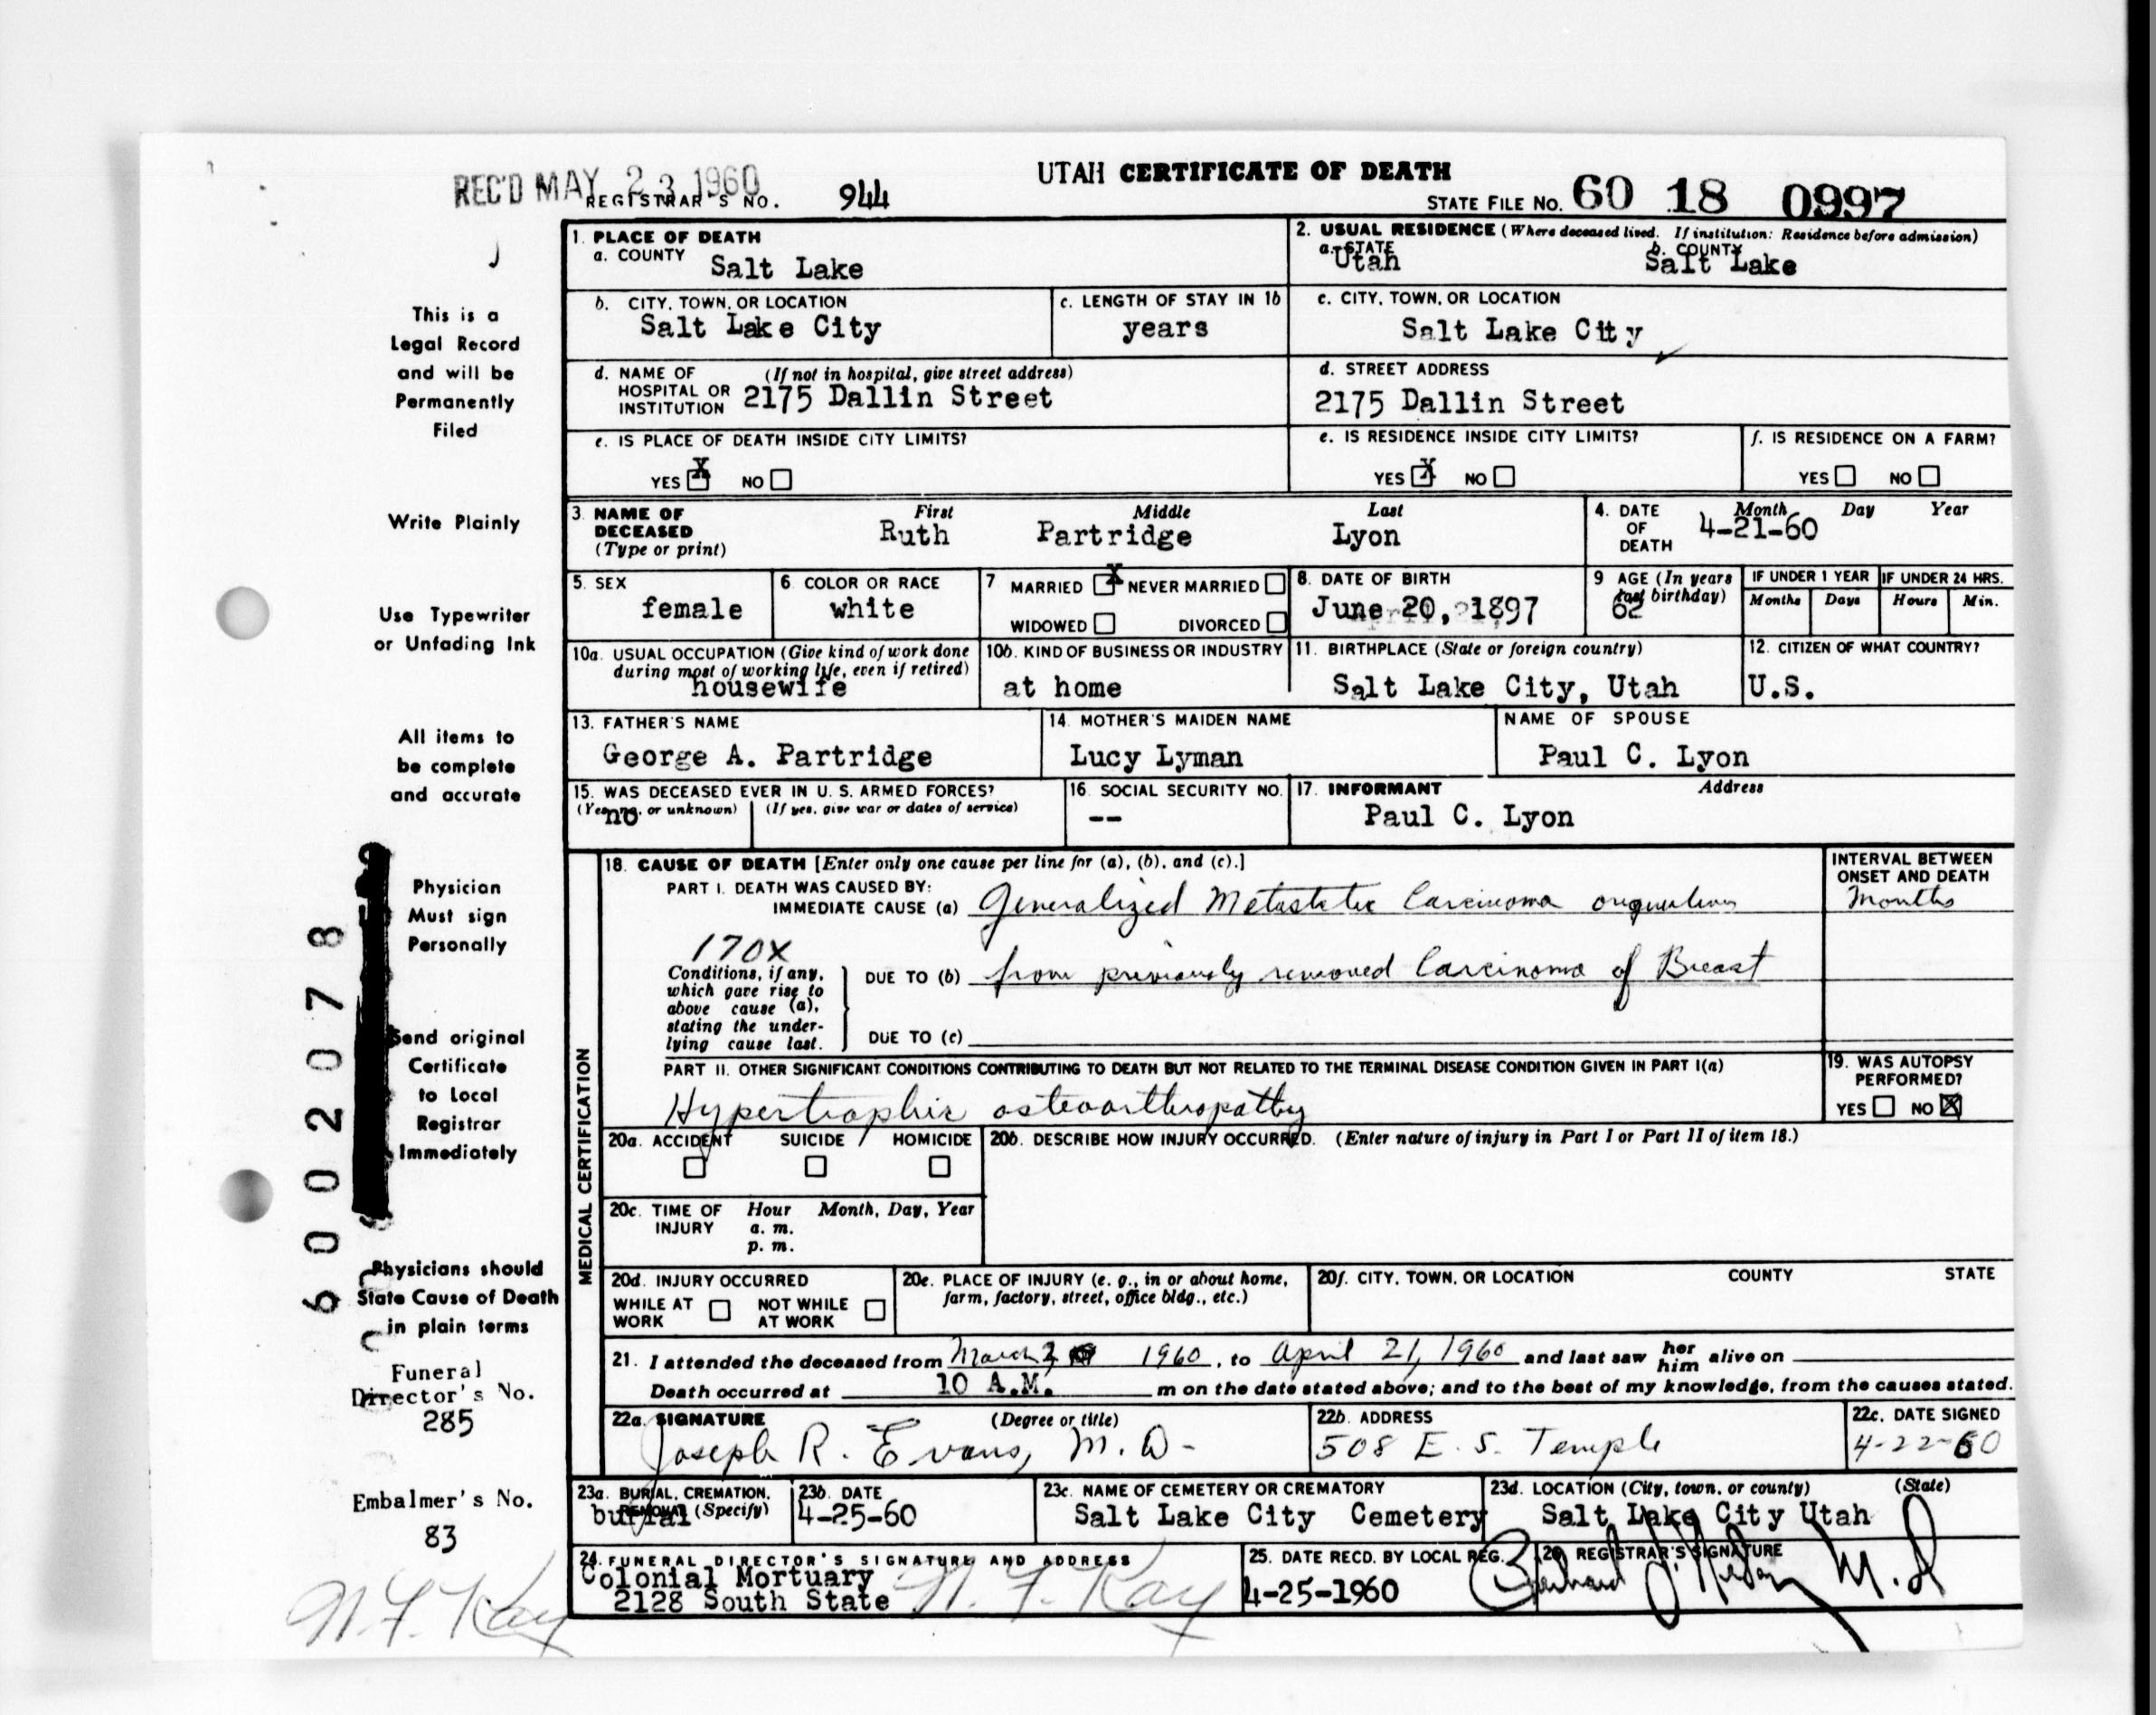 UTAH CERTIFICATE OF DEATH
REC'D MAY 23 1960
REGISTRAR'S NO. 944
STATE FILE NO. 60 18 0997
1. PLACE OF DEATH
a. COUNTY Salt Lake
2. USUAL RESIDENCE (Where deceased lived. If institution: Residence before admission)
a. STATE Utah b. COUNTY Salt Lake
b. CITY, TOWN, OR LOCATION Salt Lake City
c. LENGTH OF STAY IN 1b years
c. CITY, TOWN, OR LOCATION Salt Lake City
d. NAME OF HOSPITAL OR INSTITUTION (If not in hospital, give street address) 2175 Dallin Street
d. STREET ADDRESS 2175 Dallin Street
e. IS PLACE OF DEATH INSIDE CITY LIMITS?
YES X NO
e. IS RESIDENCE INSIDE CITY LIMITS?
YES X NO
f. IS RESIDENCE ON A FARM?
YES NO
3. NAME OF DECEASED (Type or print)
First Middle Last
Ruth Partridge Lyon
4. DATE OF DEATH Month Day Year
4-21-60
5. SEX female
6. COLOR OR RACE white
7 MARRIED X NEVER MARRIED
WIDOWED DIVORCED
8. DATE OF BIRTH June 20, 1897
9 AGE (In years last birthday) 62
IF UNDER 1 YEAR Months Days
IF UNDER 24 HRS. Hours Min.
10a. USUAL OCCUPATION (Give kind of work done during most of working life, even if retired) housewife
10b. KIND OF BUSINESS OR INDUSTRY at home
11. BIRTHPLACE (State or foreign country) Salt Lake City, Utah
12. CITIZEN OF WHAT COUNTRY? U.S.
13. FATHER'S NAME George A. Partridge
14. MOTHER'S MAIDEN NAME Lucy Lyman
NAME OF SPOUSE Paul C. Lyon
15. WAS DECEASED EVER IN U. S. ARMED FORCES?
(Yes, no, or unknown) (If yes, give war or dates of service)
no
16. SOCIAL SECURITY NO. --
17. INFORMANT Address
Paul C. Lyon
MEDICAL CERTIFICATION
18. CAUSE OF DEATH [Enter only one cause per line for (a), (b), and (c).]
INTERVAL BETWEEN ONSET AND DEATH
PART I. DEATH WAS CAUSED BY:
IMMEDIATE CAUSE (a) Generalized Metastatic Carcinoma
Months
170X
Conditions, if any, which gave rise to above cause (a), stating the underlying cause last.
DUE TO (b) from previously removed Carcinoma of Breast
DUE TO (c)
PART II. OTHER SIGNIFICANT CONDITIONS CONTRIBUTING TO DEATH BUT NOT RELATED TO THE TERMINAL DISEASE CONDITION GIVEN IN PART I(a)
Hypertrophic osteoarthropathy
19. WAS AUTOPSY PERFORMED?
YES NO X
20a. ACCIDENT SUICIDE HOMICIDE
20b. DESCRIBE HOW INJURY OCCURRED. (Enter nature of injury in Part I or Part II of item 18.)
20c. TIME OF INJURY Hour Month, Day, Year
a. m.
p. m.
20d. INJURY OCCURRED
WHILE AT WORK NOT WHILE AT WORK
20e. PLACE OF INJURY (e. g., in or about home, farm, factory, street, office bldg., etc.)
20f. CITY, TOWN, OR LOCATION COUNTY STATE
21. I attended the deceased from March 1960, to April 21, 1960 and last saw her him alive on
Death occurred at 10 A.M. m on the date stated above; and to the best of my knowledge, from the causes stated.
22a. SIGNATURE (Degree or title)
Joseph R. Evans, M.D.
22b. ADDRESS
508 E. S. Temple
22c. DATE SIGNED
4-22-60
23a. BURIAL, CREMATION, REMOVAL (Specify) burial
23b. DATE 4-25-60
23c. NAME OF CEMETERY OR CREMATORY Salt Lake City Cemetery
23d. LOCATION (City, town, or county) (State)
Salt Lake City Utah
24. FUNERAL DIRECTOR'S SIGNATURE AND ADDRESS
Colonial Mortuary N. F. Kay
2128 South State
25. DATE RECD. BY LOCAL REG.
4-25-1960
26. REGISTRAR'S SIGNATURE
M.D
This is a
Legal Record
and will be
Permanently
Filed
Write Plainly
Use Typewriter
or Unfading Ink
All items to
be complete
and accurate
Physician
Must sign
Personally
Send original
Certificate
to Local
Registrar
Immediately
Physicians should
State Cause of Death
in plain terms
Funeral
Director's No.
285
Embalmer's No.
83
N. F. Kay
6002078